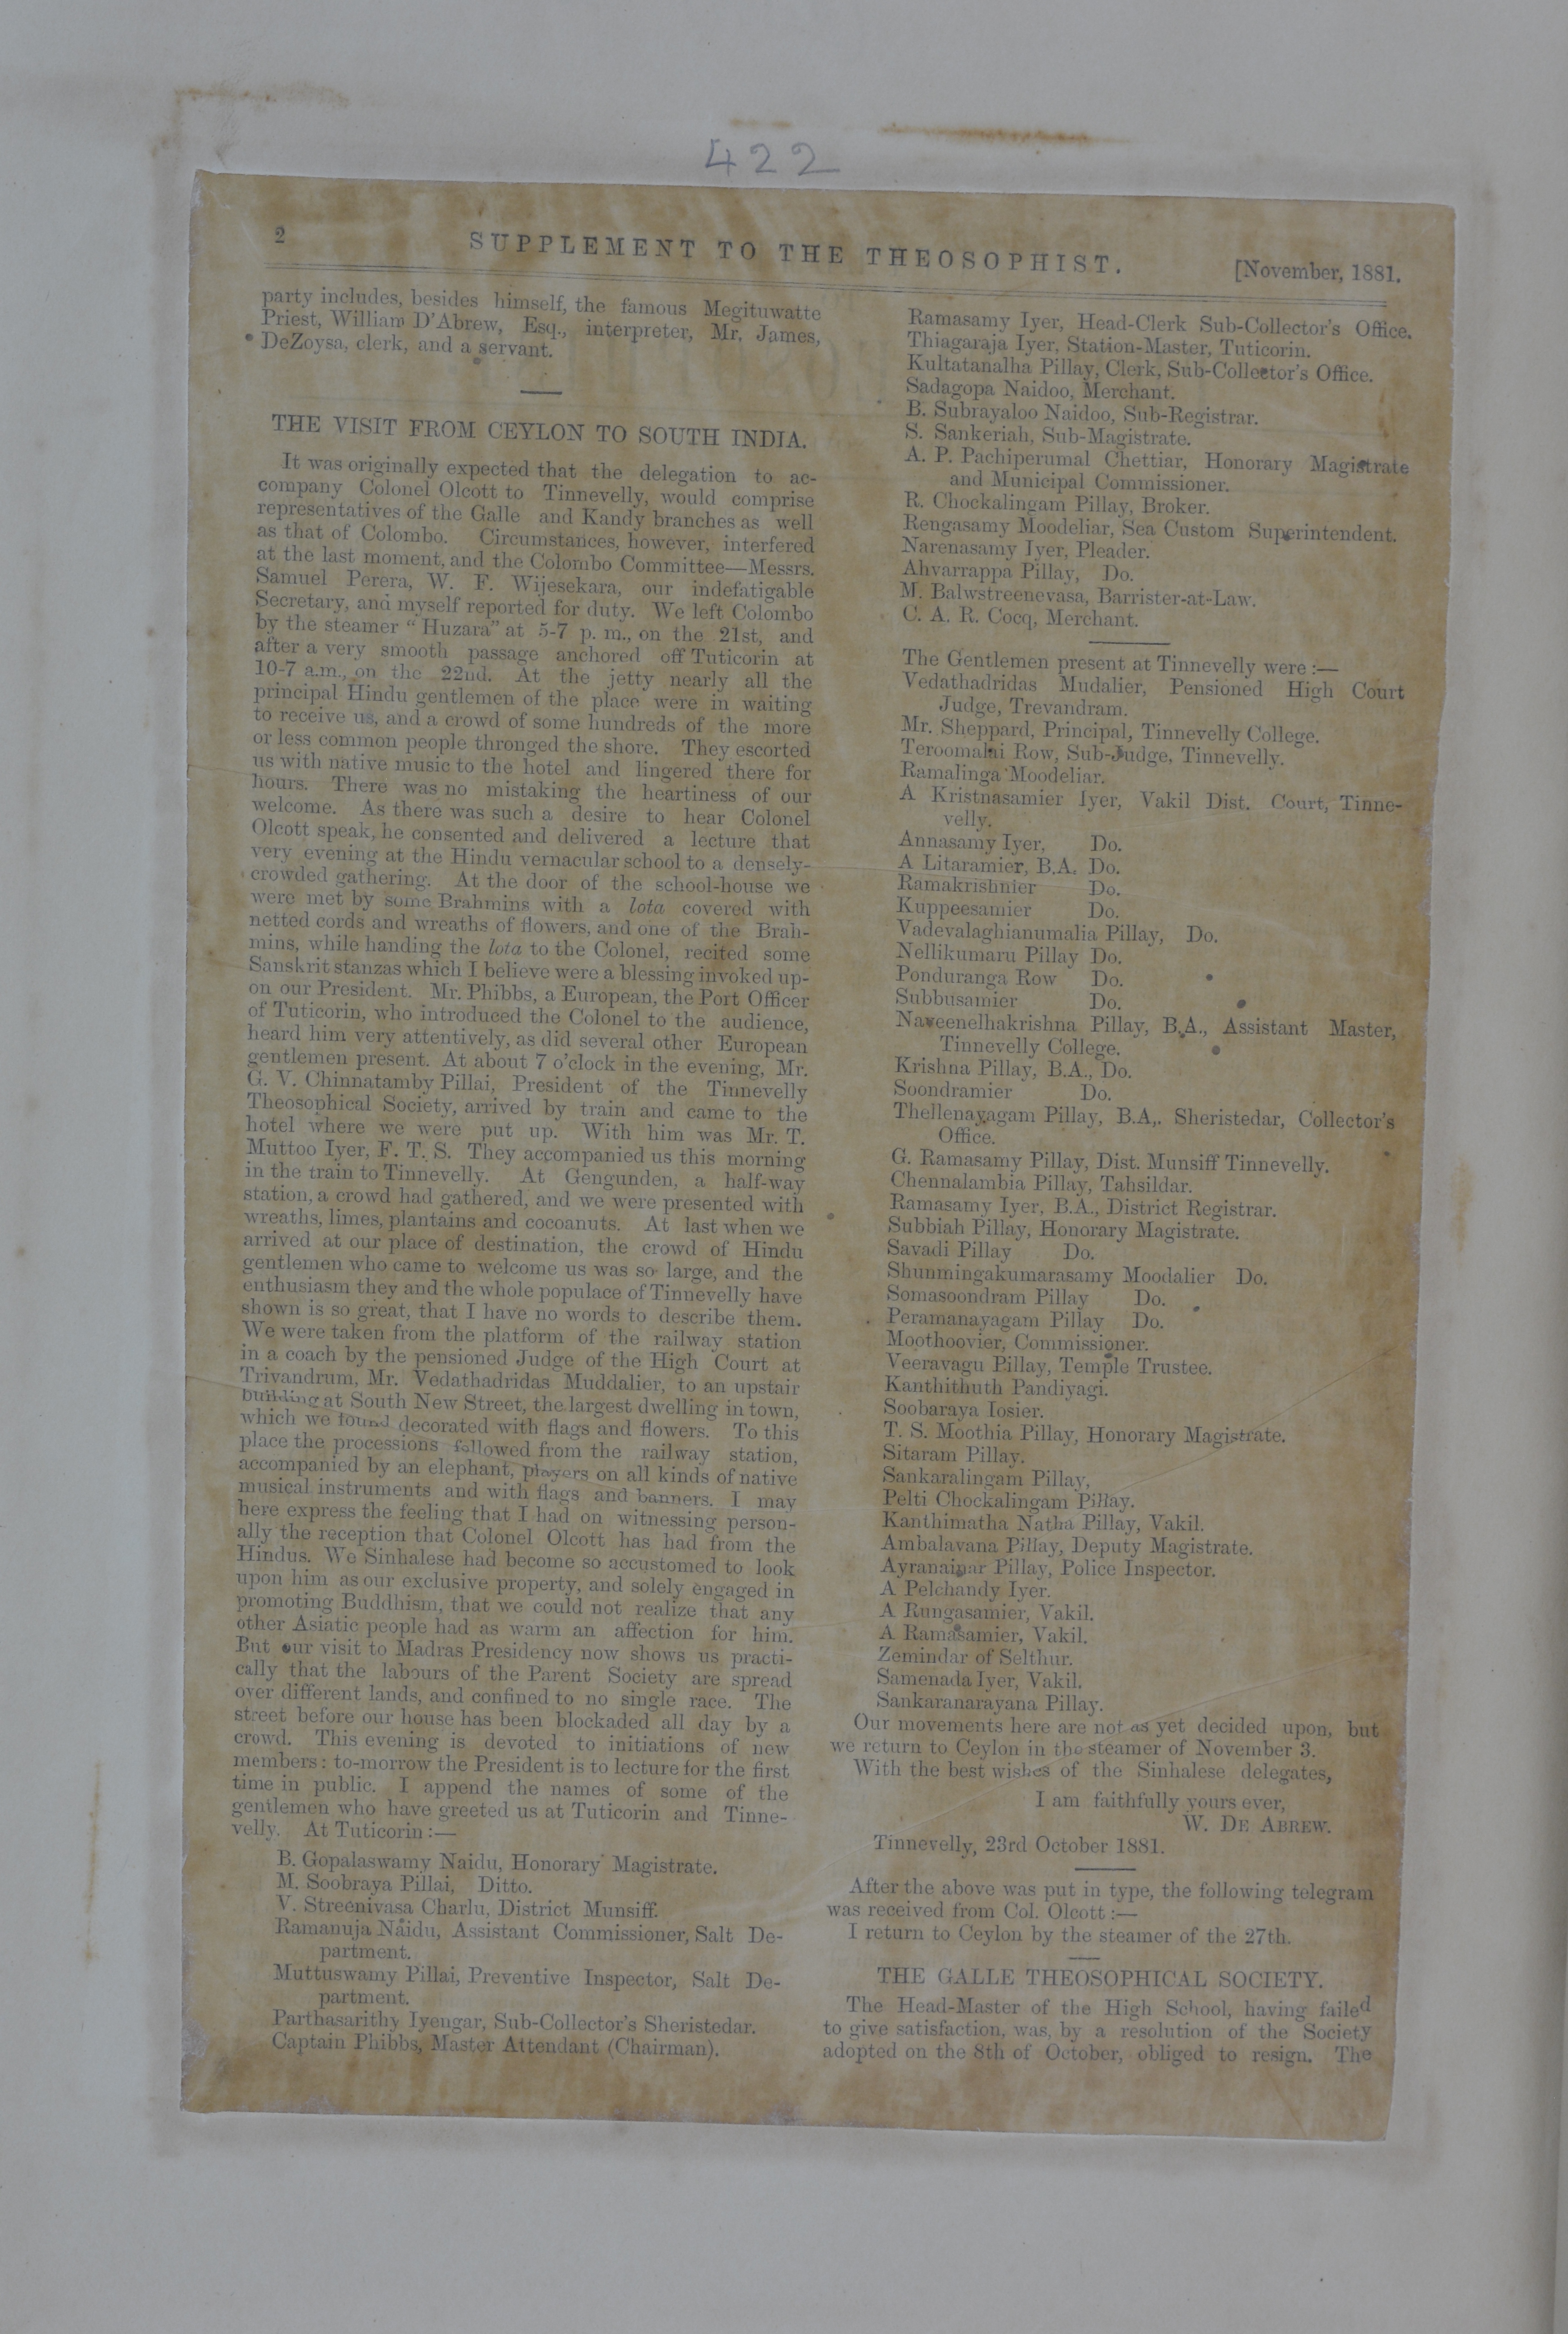 422
2
SUPPLEMENT TO THE THEOSOPHIST.
[November, 1881.
party includes, besides himself, the famous Megituwatte
Priest, William D'Abrew, Esq., interpreter, Mr. James,
DeZoysa, clerk, and a servant.
THE VISIT FROM CEYLON TO SOUTH INDIA.
It was originally expected that the delegation to ac-
company Colonel Olcott to Tinnevelly, would comprise
representatives of the Galle and Kandy branches as well
as that of Colombo. Circumstances, however, interfered
at the last moment, and the Colombo Committee—Messrs.
Samuel Perera, W. F. Wijesekara, our indefatigable
Secretary, and myself reported for duty. We left Colombo
by the steamer "Huzara" at 5-7 p. m., on the 21st, and
after a very smooth passage anchored off Tuticorin at
10-7 a.m., on the 22nd. At the jetty nearly all the
principal Hindu gentlemen of the place were in waiting
to receive us, and a crowd of some hundreds of the more
or less common people thronged the shore. They escorted
us with native music to the hotel and lingered there for
hours. There was no mistaking the heartiness of our
welcome. As there was such a desire to hear Colonel
Olcott speak, he consented and delivered a lecture that
very evening at the Hindu vernacular school to a densely-
crowded gathering. At the door of the school-house we
were met by some Brahmins with a lota covered with
netted cords and wreaths of flowers, and one of the Brah-
mins, while handing the lota to the Colonel, recited some
Sanskrit stanzas which I believe were a blessing invoked up-
on our President. Mr. Phibbs, a European, the Port Officer
of Tuticorin, who introduced the Colonel to the audience,
heard him very attentively, as did several other European
gentlemen present. At about 7 o'clock in the evening, Mr.
G. V. Chinnatamby Pillai, President of the Tinnevelly
Theosophical Society, arrived by train and came to the
hotel where we were put up. With him was Mr. T.
Muttoo Iyer, F. T. S. They accompanied us this morning
in the train to Tinnevelly. At Gengunden, a half-way
station, a crowd had gathered, and we were presented with
wreaths, limes, plantains and cocoanuts. At last when we
arrived at our place of destination, the crowd of Hindu
gentlemen who came to welcome us was so large, and the
enthusiasm they and the whole populace of Tinnevelly have
shown is so great, that I have no words to describe them.
We were taken from the platform of the railway station
in a coach by the pensioned Judge of the High Court at
Trivandrum, Mr. Vedathadridas Muddalier, to an upstair
building at South New Street, the largest dwelling in town,
which we found decorated with flags and flowers. To this
place the processions followed from the railway station,
accompanied by an elephant, players on all kinds of native
musical instruments and with flags and banners. I may
here express the feeling that I had on witnessing person-
ally the reception that Colonel Olcott has had from the
Hindus. We Sinhalese had become so accustomed to look
upon him as our exclusive property, and solely engaged in
promoting Buddhism, that we could not realize that any
other Asiatic people had as warm an affection for him.
But our visit to Madras Presidency now shows us practi-
cally that the labours of the Parent Society are spread
over different lands, and confined to no single race. The
street before our house has been blockaded all day by a
crowd. This evening is devoted to initiations of new
members: to-morrow the President is to lecture for the first
time in public. I append the names of some of the
gentlemen who have greeted us at Tuticorin and Tinne-
velly. At Tuticorin:—
B. Gopalaswamy Naidu, Honorary Magistrate.
M. Soobraya Pillai, Ditto.
V. Streenivasa Charlu, District Munsiff.
Ramanuja Naidu, Assistant Commissioner, Salt De-
partment.
Muttuswamy Pillai, Preventive Inspector, Salt De-
partment.
Parthasarithy Iyengar, Sub-Collector's Sheristedar.
Captain Phibbs, Master Attendant (Chairman).
Ramasamy Iyer, Head-Clerk Sub-Collector's Office.
Thiagaraja Iyer, Station-Master, Tuticorin.
Kultatanalha Pillay, Clerk, Sub-Collector's Office.
Sadagopa Naidoo, Merchant.
B. Subrayaloo Naidoo, Sub-Registrar.
S. Sankeriah, Sub-Magistrate.
A. P. Pachiperumal Chettiar, Honorary Magistrate
and Municipal Commissioner.
R. Chockalingam Pillay, Broker.
Rengasamy Moodeliar, Sea Custom Superintendent.
Narenasamy Iyer, Pleader.
Ahvarrappa Pillay, Do.
M. Balwstreenevasa, Barrister-at-Law.
C. A. R. Cocq, Merchant.
The Gentlemen present at Tinnevelly were:—
Vedathadridas Mudalier, Pensioned High Court
Judge, Trevandram.
Mr. Sheppard, Principal, Tinnevelly College.
Teroomalai Row, Sub-Judge, Tinnevelly.
Ramalinga Moodeliar.
A Kristnasamier Iyer, Vakil Dist. Court, Tinne-
velly.
Annasamy Iyer, Do.
A Litaramier, B.A. Do.
Ramakrishnier Do.
Kuppeesamier Do.
Vadevalaghianumalia Pillay, Do.
Nellikumaru Pillay Do.
Ponduranga Row Do.
Subbusamier Do.
Naveenelhakrishna Pillay, B.A., Assistant Master,
Tinnevelly College.
Krishna Pillay, B.A., Do.
Soondramier Do.
Thellenayagam Pillay, B.A,. Sheristedar, Collector's
Office.
G. Ramasamy Pillay, Dist. Munsiff Tinnevelly.
Chennalambia Pillay, Tahsildar.
Ramasamy Iyer, B.A., District Registrar.
Subbiah Pillay, Honorary Magistrate.
Savadi Pillay Do.
Shunmingakumarasamy Moodalier Do.
Somasoondram Pillay Do.
Peramanayagam Pillay Do.
Moothoovier, Commissioner.
Veeravagu Pillay, Temple Trustee.
Kanthithuth Pandiyagi.
Soobaraya Iosier.
T. S. Moothia Pillay, Honorary Magistrate.
Sitaram Pillay.
Sankaralingam Pillay,
Pelti Chockalingam Pillay.
Kanthimatha Natha Pillay, Vakil.
Ambalavana Pillay, Deputy Magistrate.
Ayranainar Pillay, Police Inspector.
A Pelchandy Iyer.
A Rungasamier, Vakil.
A Ramasamier, Vakil.
Zemindar of Selthur.
Samenada Iyer, Vakil.
Sankaranarayana Pillay.
Our movements here are not as yet decided upon, but
we return to Ceylon in the steamer of November 3.
With the best wishes of the Sinhalese delegates,
I am faithfully yours ever,
W. DE ABREW.
Tinnevelly, 23rd October 1881.
After the above was put in type, the following telegram
was received from Col. Olcott:—
I return to Ceylon by the steamer of the 27th.
THE GALLE THEOSOPHICAL SOCIETY.
The Head-Master of the High School, having failed
to give satisfaction, was, by a resolution of the Society
adopted on the 8th of October, obliged to resign. The